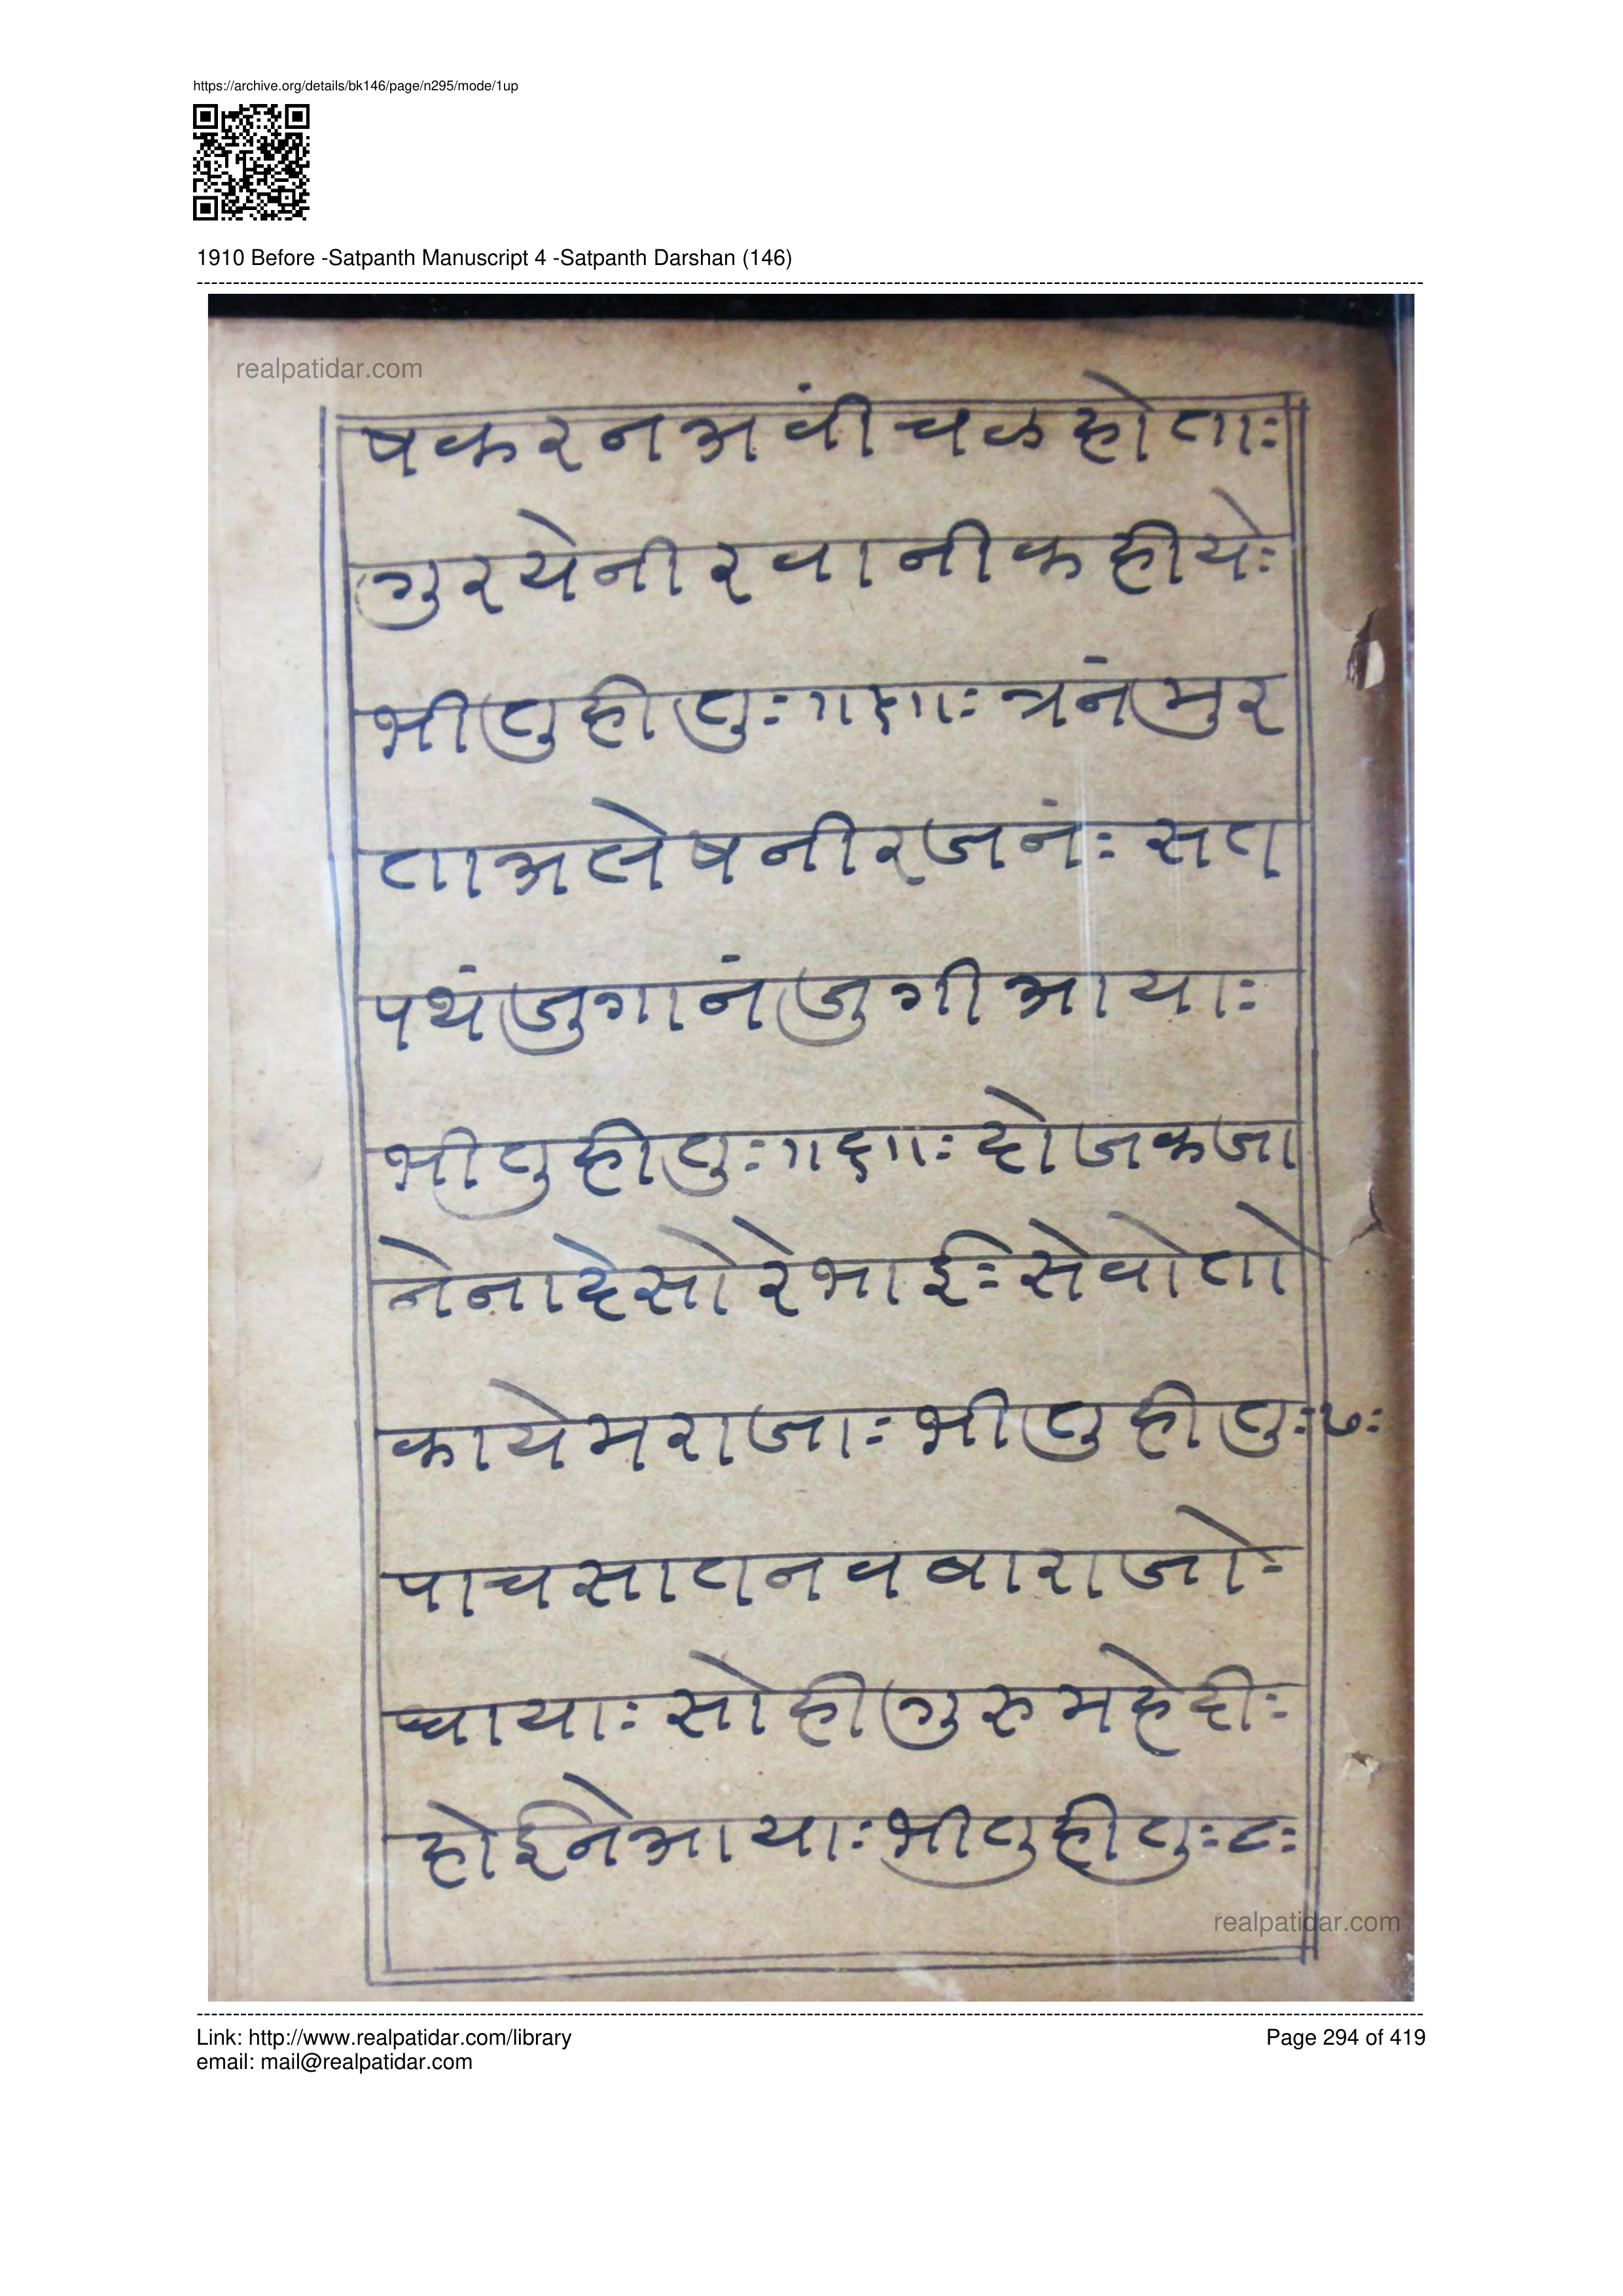 https://archive.org/details/bk146/page/n295/mode/1up
1910 Before -Satpanth Manuscript 4 -Satpanth Darshan (146)
realpatidar.com
षकरनअवींचळहोताः
गुरयेनीरवानीकहीयेः
भीतुहीतुः॥५॥ः त्रनंमुर
ताअलेषनीरजनंः सत
पथंजुगानंजुगीआयाः
भीतुहीतुः॥६॥ः दोजकजा
नेनादेसोरेभाईः सेवोतो
कायेमराजाः भीतुहीतुः७ः
पाचसातनवबाराजोः
धायाः सोहीगुरुमहेदीः
होईनेआयाः भीतुहीतुः८ः
realpatidar.com
Link: http://www.realpatidar.com/library
Page 294 of 419
email: mail@realpatidar.com